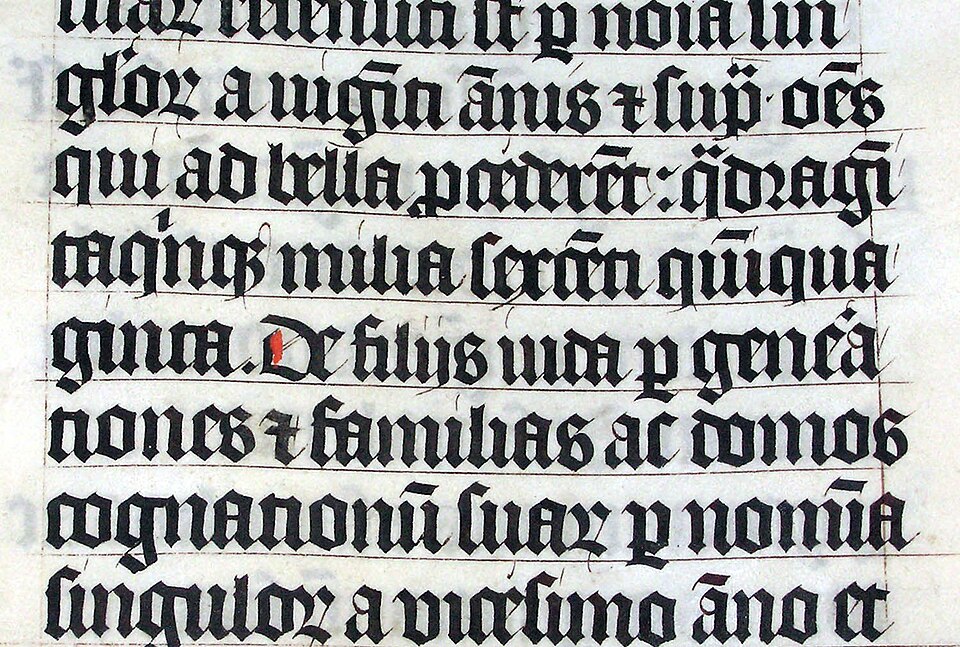 suaꝝ recensiti st̄ ꝑ noīa sin
gl̓oꝝ a uigīti ānis ⁊ sup̄ · oēs
qui ad bella ꝓcederēt : qᷓdragī
taqͥnqꝫ milia sexcēti qūiqua
ginta. De filijs iuda ꝑ gen̓a
tiones ⁊ familias ac domos
cognationū suaꝝ ꝑ nomīa
singuloꝝ a vicesimo āno et